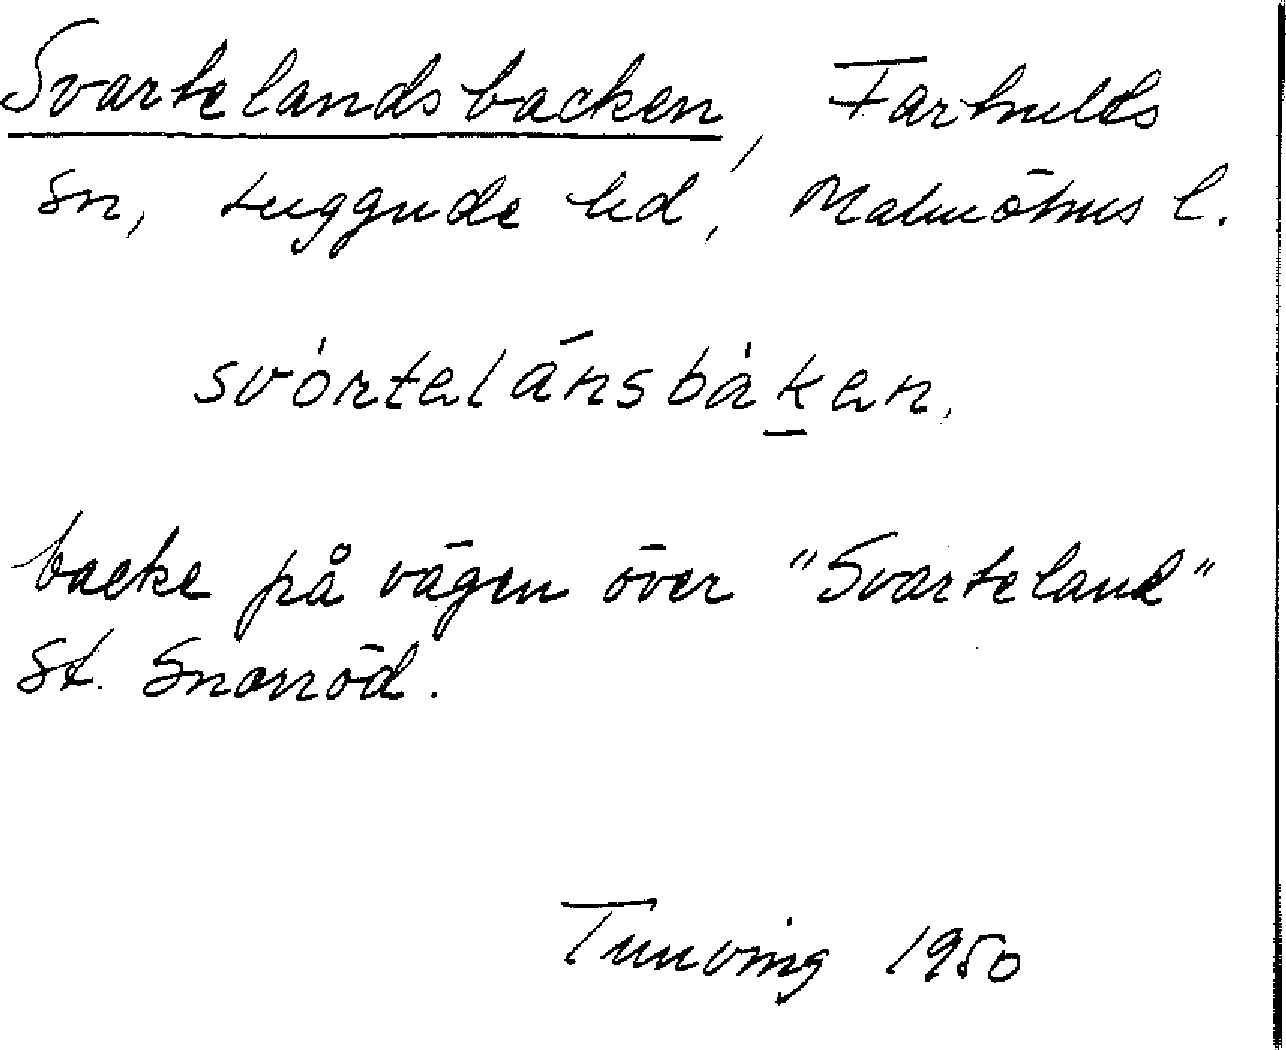 Svartelandsbacken, Farhults
sn, Luggude hd, Malmöhus l.
svòrtelánsbàken,
backe på vägen över "Svarteland"
St. Snarröd.
Tunving 1950